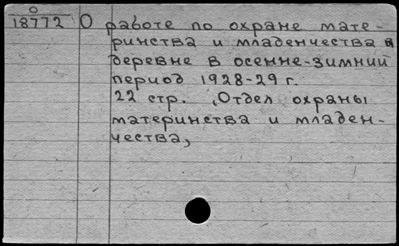 О
18772
О работе по охране мате-
ринства и младенчества в
деревне в осенне-зимний
период 1928-29 г.
22 стр. (Отдел охраны
материнства и младен-
чества)